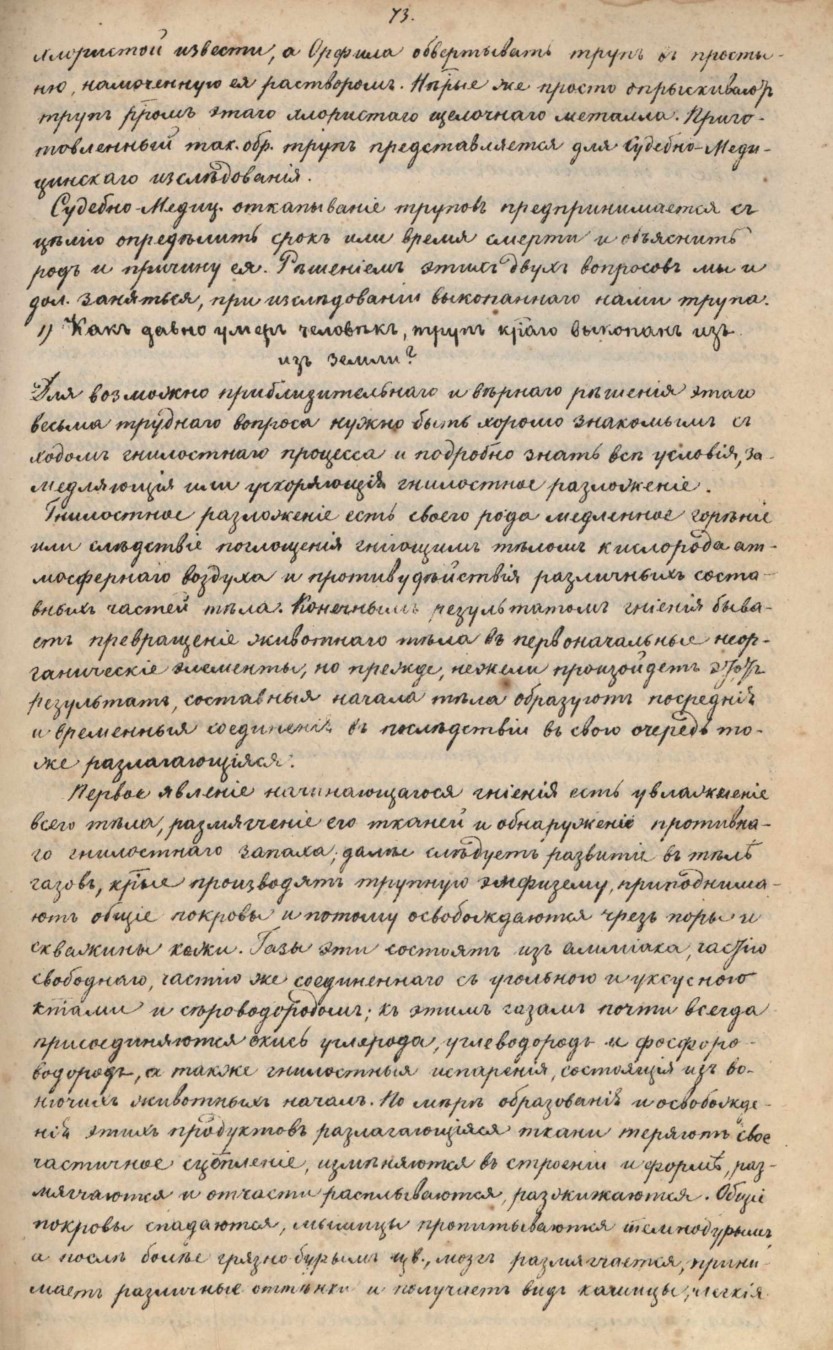 73.
хлористой извести, а Орфила обвертывать трупъ въ просты-
ню, намоченную ея растворомъ. Нѣкрые же просто опрыскиваютъ
трупъ рромъ этаго хлористаго щелочнаго металла. Приго-
товленный так. обр. трупъ представляется для Судебно-Меди-
цинскаго изслѣдованія.
Судебно-Медиц. откапываніе труповъ предпринимается съ
цѣлію опредѣлить срокъ или время смерти и объяснить
родъ и причину ея. Рѣшеніемъ этихъ двухъ вопросовъ мы и
дол. заняться, при изслѣдованіи выкопаннаго нами трупа.
1) Какъ давно умеръ человѣкъ, трупъ краго выкопанъ изъ
изъ земли?
Для возможно приблизительнаго и вѣрнаго рѣшенія этаго
весьма труднаго вопроса нужно быть хорошо знакомымъ съ
ходомъ гнилостнаго процесса и подробно знать всѣ условія, за-
медляющія или ускоряющія гнилостное разложеніе.
Гнилостное разложеніе есть своего рода медленное горѣніе
или слѣдствіе поглощенія гніющимъ тѣломъ кислорода ат-
мосфернаго воздуха и противудѣйствія различныхъ соста-
вныхъ частей тѣла. Конечнымъ результатомъ гніенія быва-
етъ превращеніе животнаго тѣла въ первоначальные неор-
ганическіе элементы, но прежде, нежели произойдетъ этотъ
результатъ, составныя начала тѣла образуютъ посреднія
и временныя соединенія въ послѣдствіи въ свою очередь то-
же разлагающіяся.
Первое явленіе начинающагося гніенія есть увлажненіе
всего тѣла, размягченіе его тканей и обнаруженіе противна-
го гнилостнаго запаха; далѣе слѣдуетъ развитіе въ тѣлѣ
газовъ, крые производятъ трупную эмфизему, приподнима-
ютъ общіе покровы и потому освобождаются чрезъ поры и
скважины кожи. Газы эти состоятъ изъ амміака, частію
свободнаго, частію же соединеннаго съ угольною и уксусною
ктами и сѣроводородомъ; къ этимъ газамъ почти всегда
присоединяются окись углерода, углеводородъ и фосфоро-
водородъ, а также гнилостныя испаренія, состоящія изъ во-
нючихъ животныхъ началъ. По мѣрѣ образованія и освобожде-
нія этихъ продуктовъ разлагающіяся ткани теряютъ свое
частичное сцѣпленіе, измѣняются въ строеніи и формѣ, раз-
мягчаются и отчасти расплываются, разжижаются. Общіе
покровы спадаются, мышицы пропитываются темнобурымъ,
а послѣ болѣе грязно бурымъ цв., мозгъ размягчается, прини-
маетъ различные оттѣнки и получаетъ видъ кашицы, легкія